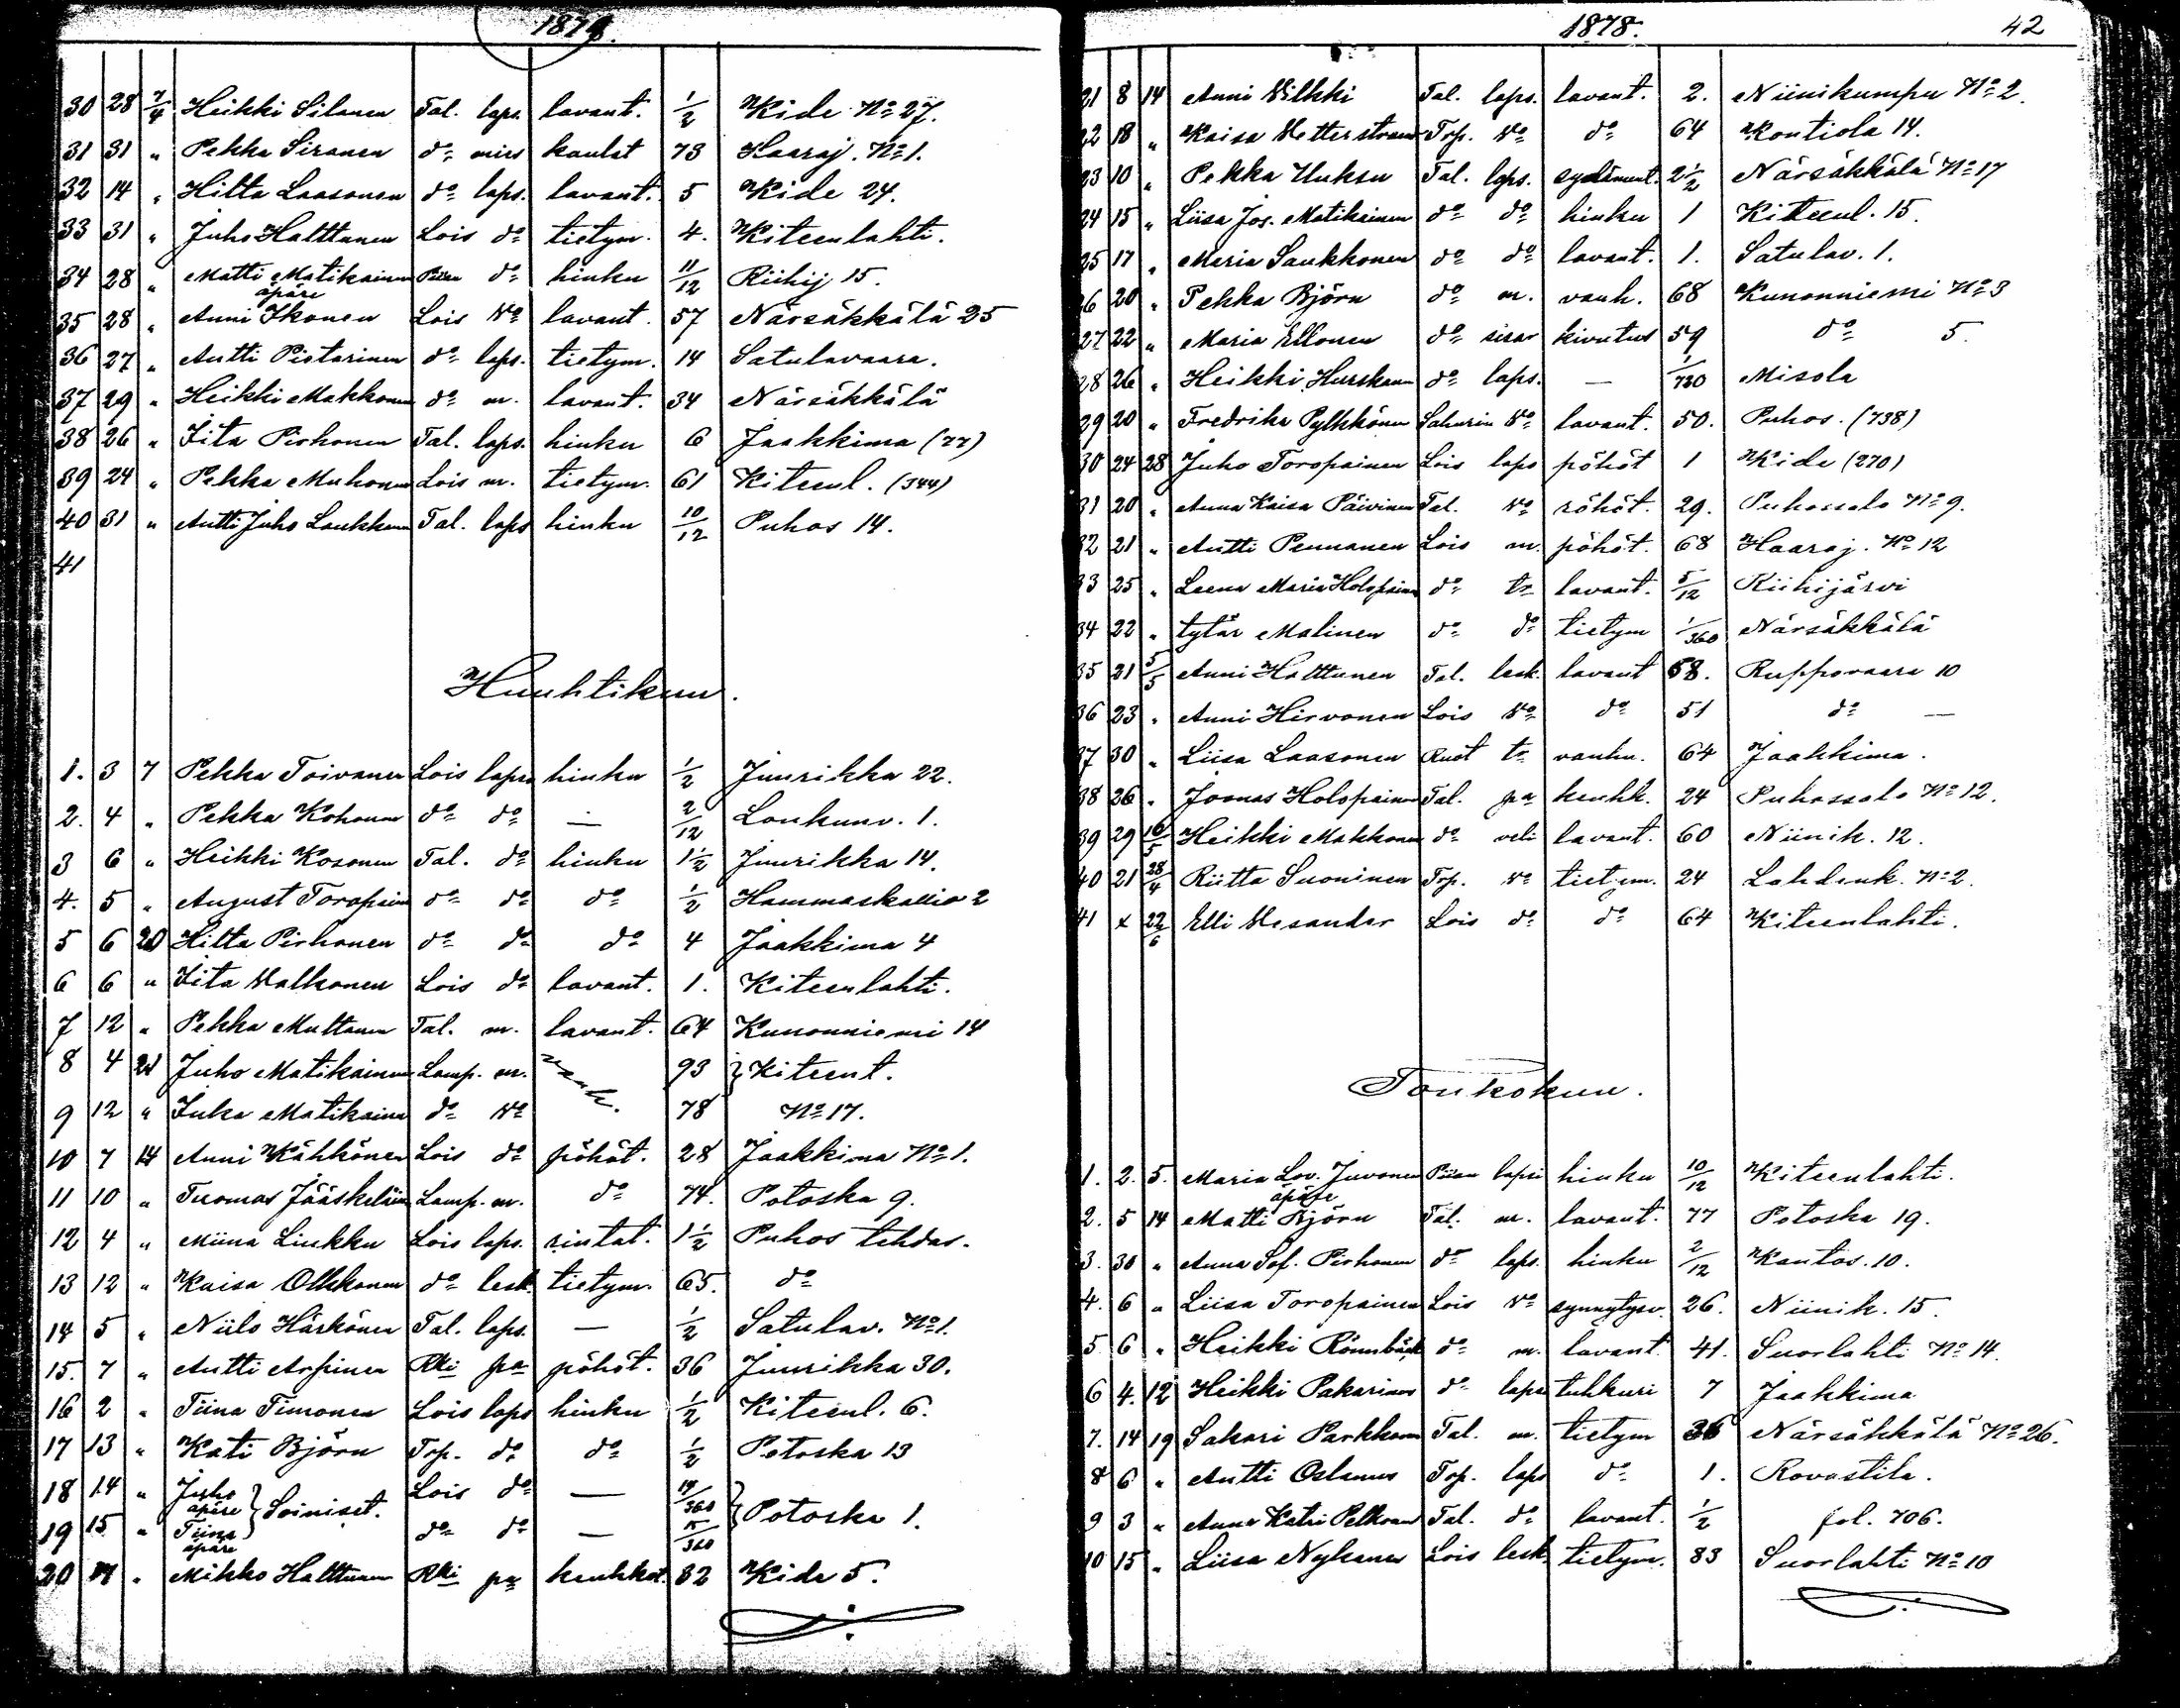 1878.
30 28 7/4 Heikki Silanen Tal. laps. lavant. 1/2 Kide No 27.
31 31 " Pekka Siranen do mies kaulat 73 Haaraj. No 1.
32 14 " Hilta Laasonen do laps. lavant. 5 Kide 24.
33 31 " Juho Halttunen Lois do tietym. 4. Kiteenlahti.
34 28 " Matti Matikainen Piian do hinku 11/12 Riihij 15.
äpäre
35 28 " Anni Ikonen Lois Vo lavant. 57 Närsäkkälä 25
36 27 " Antti Pistarinen do laps. tietym. 14 Satulavaara.
37 29 " Heikki Makkonen do m. lavant. 34 Närsäkkälä
38 26 " Iita Pirhonen Tal. laps. hinku 6 Jaakkima (77)
39 24 " Pekka Muhonen Lois m. tietym. 61 Kiteenl. (344)
40 31 " Antti Juho Laukkanen Tal. laps hinku 10/12 Puhos 14.
41
Huuhtikuu.
1. 3 7 Pekka Toivanen Lois lapsi hinku 1/2 Juurikka 22.
2. 4 " Pekka Kohonen do do — 2/12 Loukunv. 1.
3 6 " Heikki Kosonen Tal. do hinku 1 1/2 Juurikka 14.
4. 5 " August Toropainen do do do 1/2 Hammaskallio 2
5 6 20 Hilta Pirhonen do do do 4 Jaakkima 4
6 6 " Iita Valkonen Lois do lavant. 1. Kiteenlahti.
7 12 " Pekka Multanen Tal. m. lavant. 64 Kunonniemi 14
8 4 21 Juho Matikainen Lamp. m. vanh. 93 } Kiteent.
9 12 " Inka Matikainen do Vo 78 No 17.
10 7 14 Anni Kähkönen Lois do pöhöt. 28 Jaakkima No 1.
11 10 " Tuomas Jääskeläinen Lamp. m. do 74. Potoska 9.
12 4 " Miina Liukku Lois laps. rintat. 1 1/2 Puhos tehdas.
13 12 " Kaisa Ollikonen do lesk tietym. 65. do
14 5 " Niilo Härkönen Tal. laps. — 1/2 Satulav. No 1.
15. 7 " Antti Arpinen Rki pa pöhöt. 36 Juurikka 30.
16 2 " Tiina Timonen Lois laps hinku 1/2 Kiteenl. 6.
17 13 " Kati Björn Top. do do 1/2 Potoska 13
18 14 " Juho äpäre } Soiniset. Lois do — 14/360 } Potoska 1.
19 15 " Tiina äpäre do do — 15/360
20 " Mikko Halttunen Rki pa keuhkot. 32 Kide 5.
1878. 42
21 8 14 Anni Vilkki Tal. laps. lavant. 2. Niinikumpu No 2.
22 18 " Kaisa Vetterstrand Top. Vo do 64 Kontiola 14.
23 10 " Pekka Huksu Tal. laps. sydämmt. 2 1/2 Närsäkkälä No 17
24 15 " Liisa Jos. Matikainen do do hinku 1 Kiteenl. 15.
25 17 " Maria Saukkonen do do lavant. 1. Satulav. 1.
26 20 " Pekka Björn do m. vanh. 68 Kunonniemi No 3
27 22 " Maria Ellonen do sisar kivutus 59 do 5.
28 26 " Heikki Hurskanen do laps. — 1/730 Misola
29 20 " Fredrika Pylkkönen Sahurin Vo lavant. 50. Puhos. (738)
30 24 28 Juho Toropainen Lois laps pöhöt 1 Kide (270)
31 20 " Anna Kaisa Päivinen Tal. Vo röhöt. 29. Puhossalo No 9.
32 21 " Antti Pennanen Lois m. pöhöt. 68 Haaraj. No 12
33 25 " Leena Maria Holopainen do tr lavant. 5/12 Riihijärvi
34 22 " tytär Malinen do do tietym 1/360 Närsäkkälä
35 21 5/5 Anni Halttunen Tal. lesk. lavant 68. Ruppovaara 10
36 23 " Anni Hirvonen Lois Vo do 51 do —
37 30 " Liisa Laasonen Rust tr vanhu. 64 Jaakkima.
38 26 " Joonas Holopainen Tal. pa keuhk. 24 Puhossalo No 12.
39 29 10/5 Heikki Makkonen do veli lavant. 60 Niinik. 12.
40 21 28/4 Riitta Suoninen Top. Vo tietym. 24 Lahdenk. No 2.
41 x 22/6 Elli Vesander Lois do do 64 Kiteenlahti.
Toukokuu.
1. 2. 5. Maria Lov. Juvonen Piian lapsi hinku 10/12 Kiteenlahti.
äpäre
2. 5 14 Matti Björn Tal. m. lavant. 77 Potoska 19.
3. 30 " Anna Sof. Pirhonen do laps. hinku 2/12 Kantos. 10.
4. 6 " Liisa Toropainen Lois Vo synnytysv. 26. Niinik. 15.
5 6 " Heikki Rönnbäck do m. lavant. 41. Suorlahti No 14.
6 4. 12 Heikki Pakarinen do lapsi tuhkuri 7 Jaakkima
7. 14 19 Sakari Parkkonen Tal. m. tietym 36 Närsäkkälä No 26.
8 6 " Antti Oslamus Top. laps do 1. Rovastila.
9 3 " Anna Katri Pelkonen Tal. do lavant. 1/2 fol. 706.
10 15 " Liisa Nykanen Lois lesk tietym. 83 Suorlahti No 10